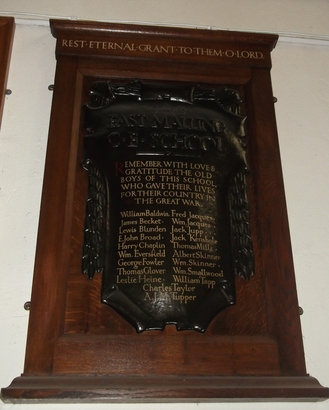 REST·ETERNAL·GRANT·TO·THEM·O·LORD.
EAST MALLING
C·E·SCHOOL
REMEMBER WITH LOVE &
GRATITUDE THE OLD
BOYS OF THIS SCHOOL
WHO GAVE THEIR LIVES
FOR THEIR COUNTRY IN
THE GREAT WAR.
William Baldwin. Fred Jacques.
James Becket. Wm. Jacques.
Lewis Blunden Jack Jupp.
E. John Broad. Jack
Harry Chaplin Thomas Mills.
Wm. Eversfield Albert Skinner
George Fowler. Wm. Skinner.
Thomas Glover Wm. Smallwood
Leslie Heine. William Tapp
Charles Taylor
Tupper